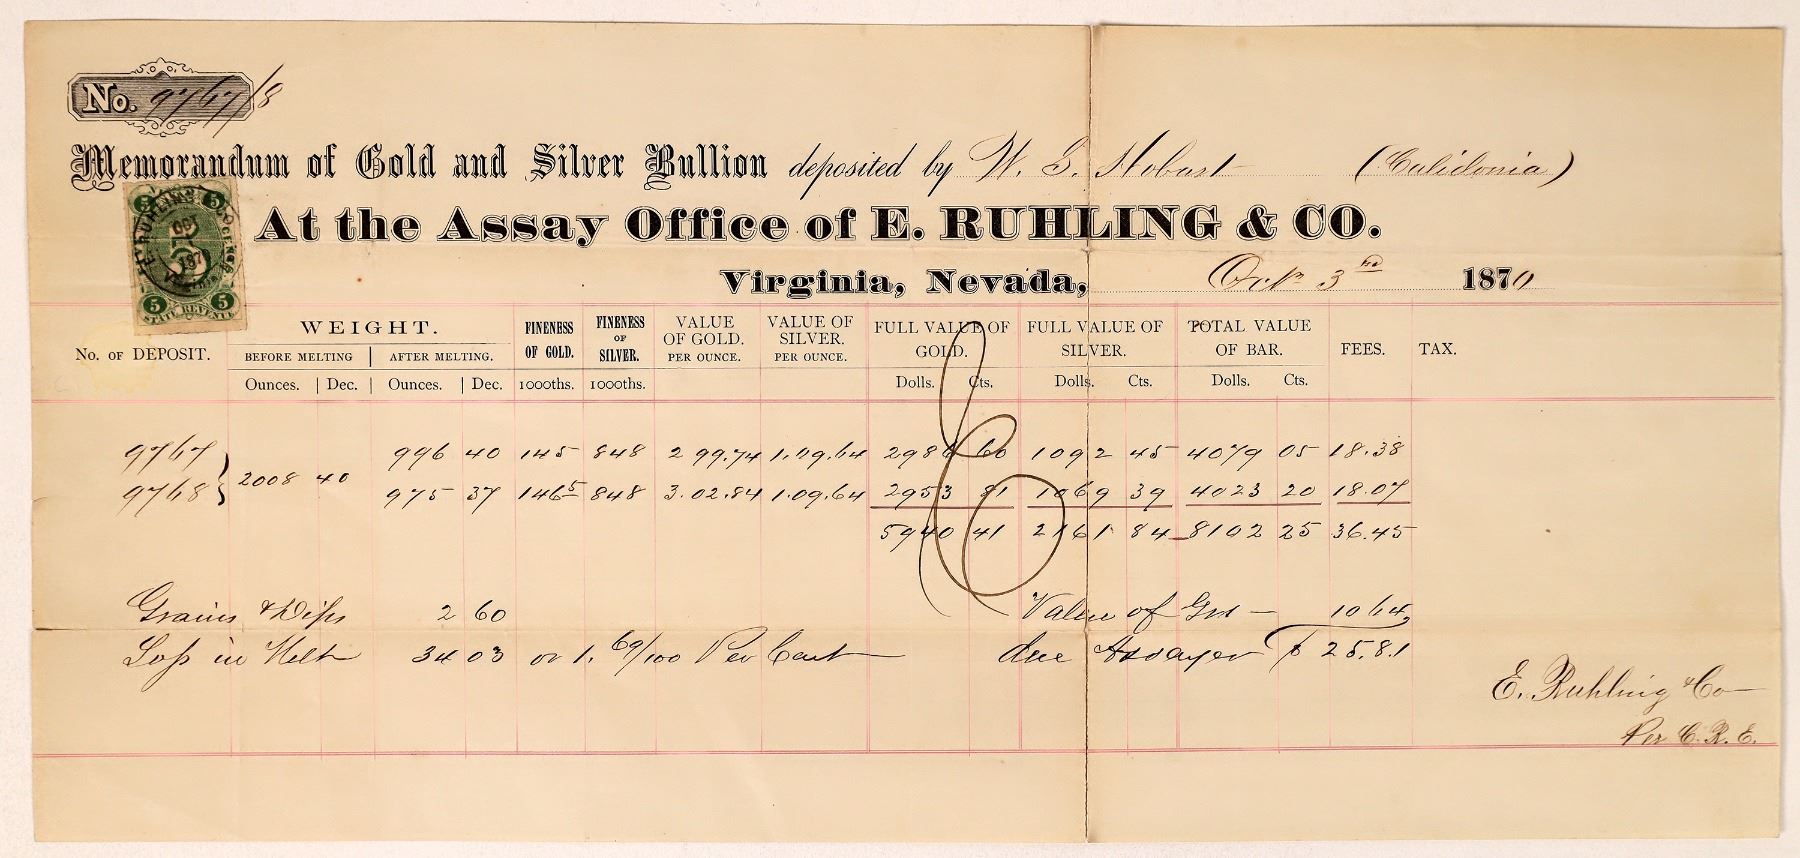 No. 9767/8
Memorandum of Gold and Silver Bullion deposited by W. S. Hobart (Calidonia)
At the Assay Office of E. RUHLING & CO.
Virginia, Nevada, Oct 3rd 1870
5 5
E. RUHLING & CO
OCT
3
1870
5 5
STATE REVENUE
No. OF DEPOSIT. WEIGHT. FINENESS OF GOLD. FINENESS OF SILVER. VALUE OF GOLD. PER OUNCE. VALUE OF SILVER. PER OUNCE. FULL VALUE OF GOLD. FULL VALUE OF SILVER. TOTAL VALUE OF BAR. FEES. TAX.
BEFORE MELTING AFTER MELTING.
Ounces. Dec. Ounces. Dec. 1000ths. 1000ths. Dolls. Cts. Dolls. Cts. Dolls. Cts.
9767 996 40 145 848 2 99.74 1.09.64 2986 60 1092 45 4079 05 18.38
2008 40
9768 975 37 1465 848 3.02.84 1.09.64 2953 81 1069 39 4023 20 18.07
5940 41 2161 84 8102 25 36.45
Grains & Dips 2 60 Value of Grs 10 64
Loss in Melt 34 03 or 1. 69/100 Per Cent due Assayer $ 25.81
E. Ruhling & Co
Per C. R. E.